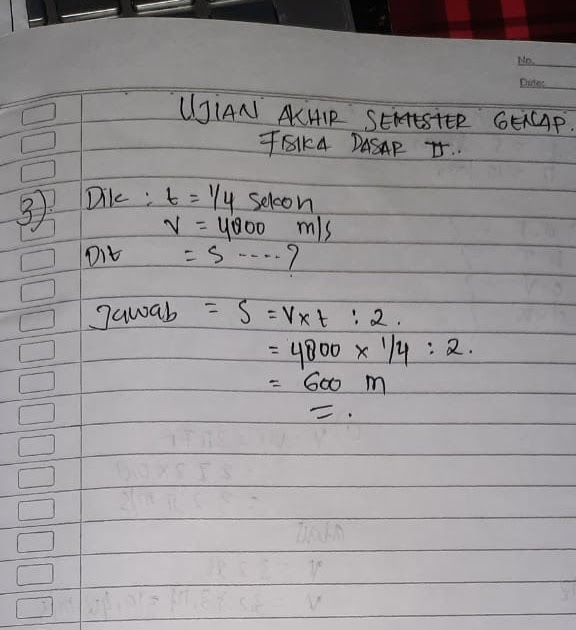 No.
Date:
UJIAN AKHIR SEMESTER GENAP.
FISIKA DASAR II..
3) Dik : t = 1/4 sekon
V = 4800 m/s
Dit = S ....?
Jawab = S = V x t : 2.
= 4800 x 1/4 : 2.
= 600 m
= .